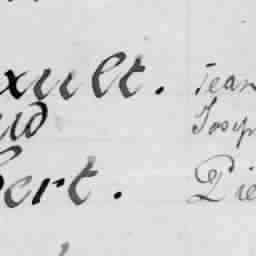 xult. Jean
ud Josep
bert. Pie